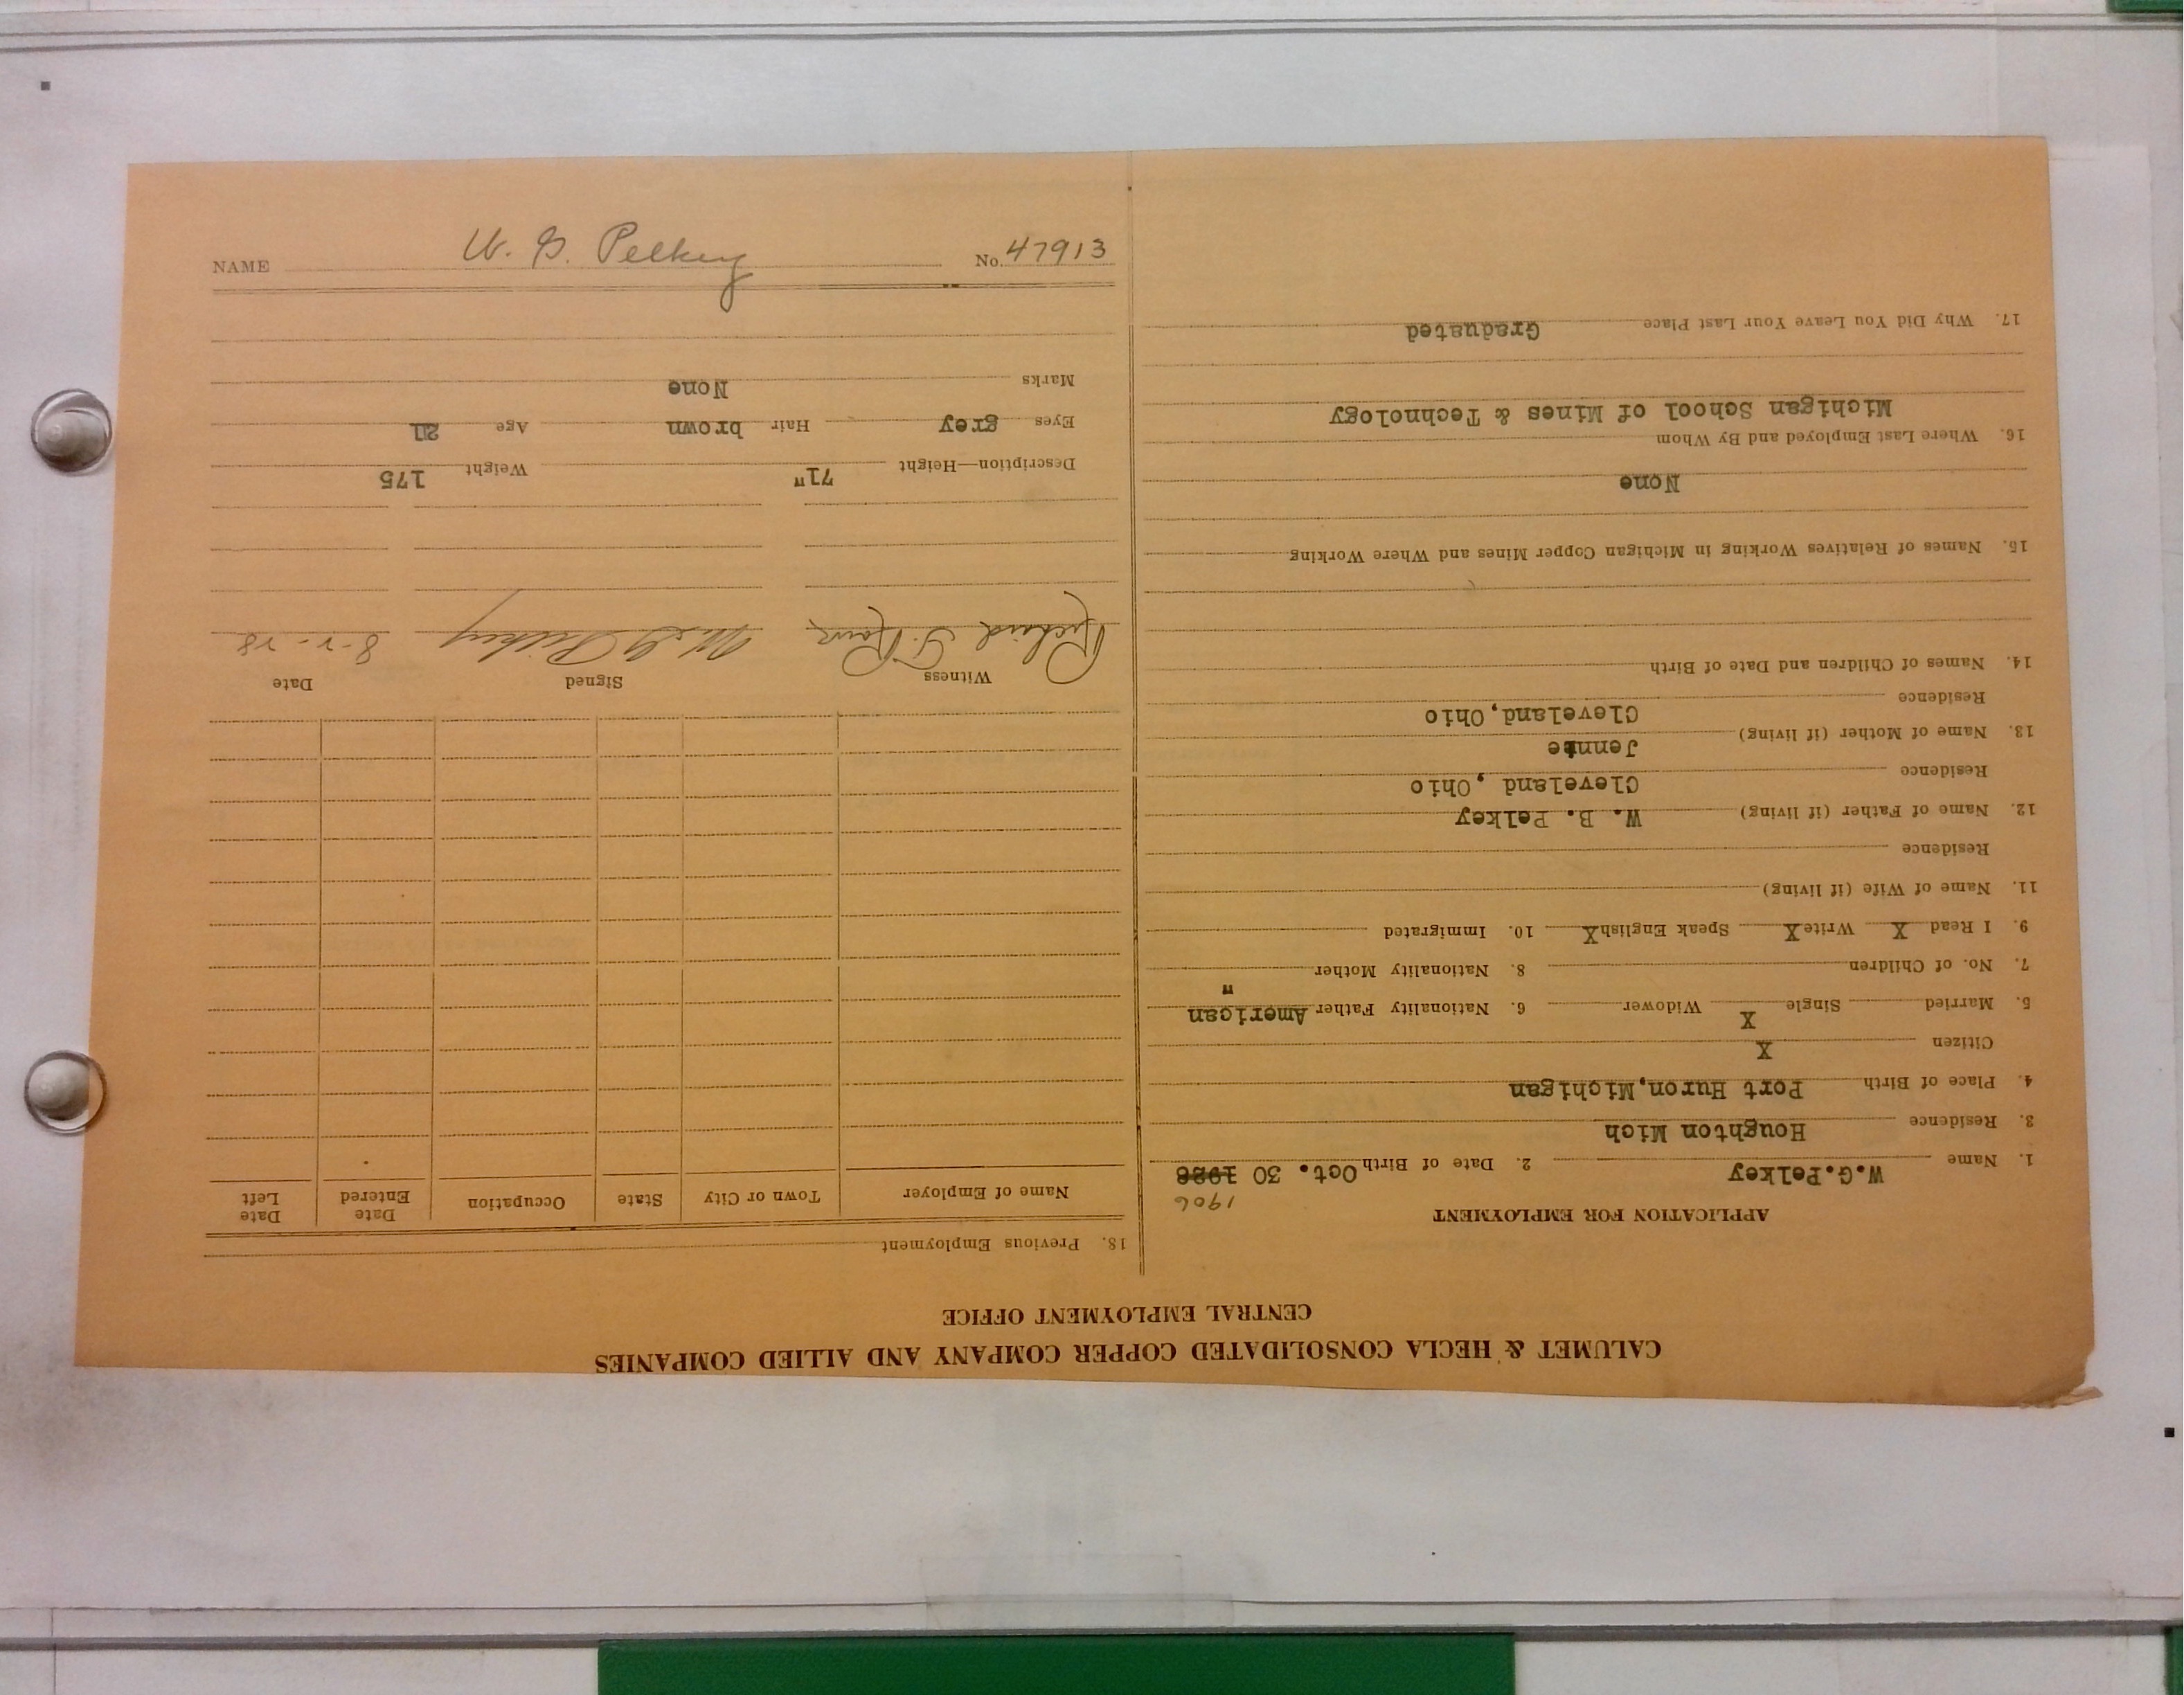 CALUMET & HECLA CONSOLIDATED COPPER COMPANY AND ALLIED COMPANIES
CENTRAL EMPLOYMENT OFFICE
APPLICATION FOR EMPLOYMENT
1906
1. Name W.G.Pelkey 2. Date of Birth Oct. 30 1928
3. Residence Houghton Mich
4. Place of Birth Port Huron,Michigan
Citizen X
5. Married Single X Widower 6. Nationality Father American
7. No. of Children 8. Nationality Mother "
9. I Read X Write X Speak English X 10. Immigrated
11. Name of Wife (if living)
Residence
12. Name of Father (if living) W. B. Pelkey
Residence Cleveland ,Ohio
13. Name of Mother (if living) Jennie
Residence Cleveland,Ohio
14. Names of Children and Date of Birth
15. Names of Relatives Working in Michigan Copper Mines and Where Working
None
16. Where Last Employed and By Whom
Michigan School of Mines & Technology
17. Why Did You Leave Your Last Place Graduated
18. Previous Employment
Name of Employer Town or City State Occupation Date Entered Date Left
Witness Signed Date
Richard F. W. G. Pelkey 8-2-28
Description—Height 71" Weight 175
Eyes grey Hair brown Age 21
Marks None
NAME W. G. Pelkey No. 47913